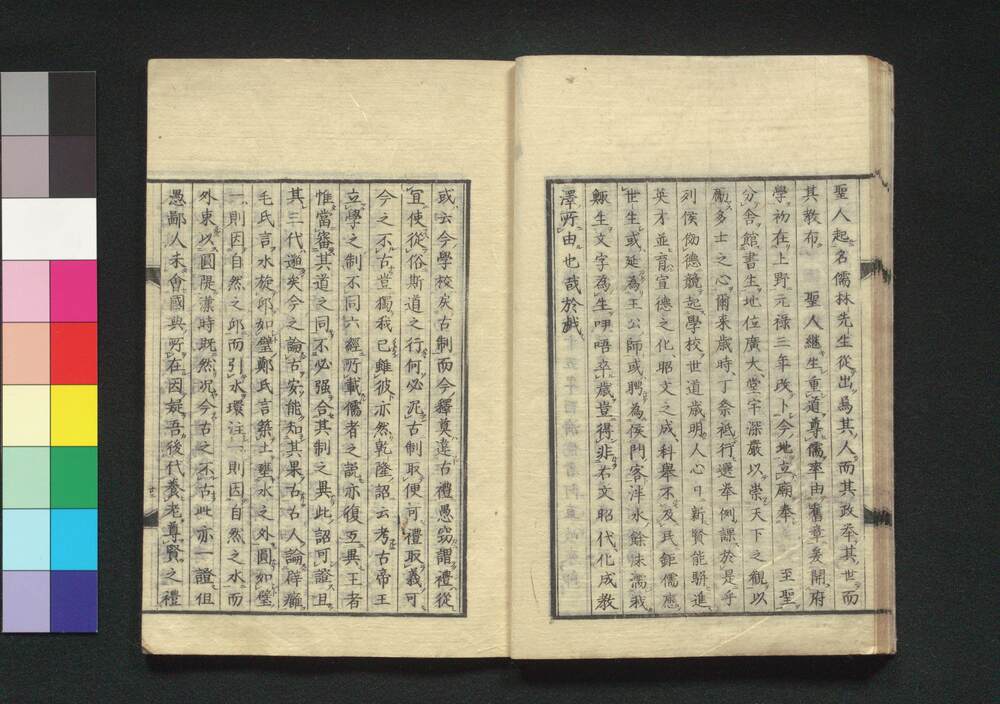 聖人起名儒林先生從出焉其人而其政擧其世而
其教布 聖人繼生重道尊儒率由舊章爰開府
學初在上野元祿三年改卜今地立廟奉 至聖
分舍館書生地位廣大堂宇深嚴以崇天下之觀以
勵多士之心爾來歲時丁祭祗行選擧例課於是乎
列侯傚德競起學校世道歲明人心日新賢能駢進
英才並育宣德之化昭文之成科擧不及民鉅儒應
世生或延為王公師或聘為侯門客泮水餘沫濡我
鯫生文字為生呻唔卒歲豈得非右文昭代化成教
澤所由也哉於戲
或云今學校矣古制而今釋奠違古禮愚竊謂禮從
宜使從俗斯道之行何必泥古制取便可禮取義可
今之不古豈獨我已雖彼亦然乾隆詔云考古帝王
立學之制不同六經所載儒者之說亦復互異王者
惟當審其道之同不必强合其制之異此詔可證且
其三代邈矣今之論古安能知其果古古人論辟廱
毛氏言水旋邱如璧鄭氏言築土壅水之外圓如璧
一則因自然之邱而引水環注一則因自然之水而
外束以圓隄漢時既然况今古之不古此亦一證但
愚鄙人未會國典所在因疑吾後代養老尊賢之禮